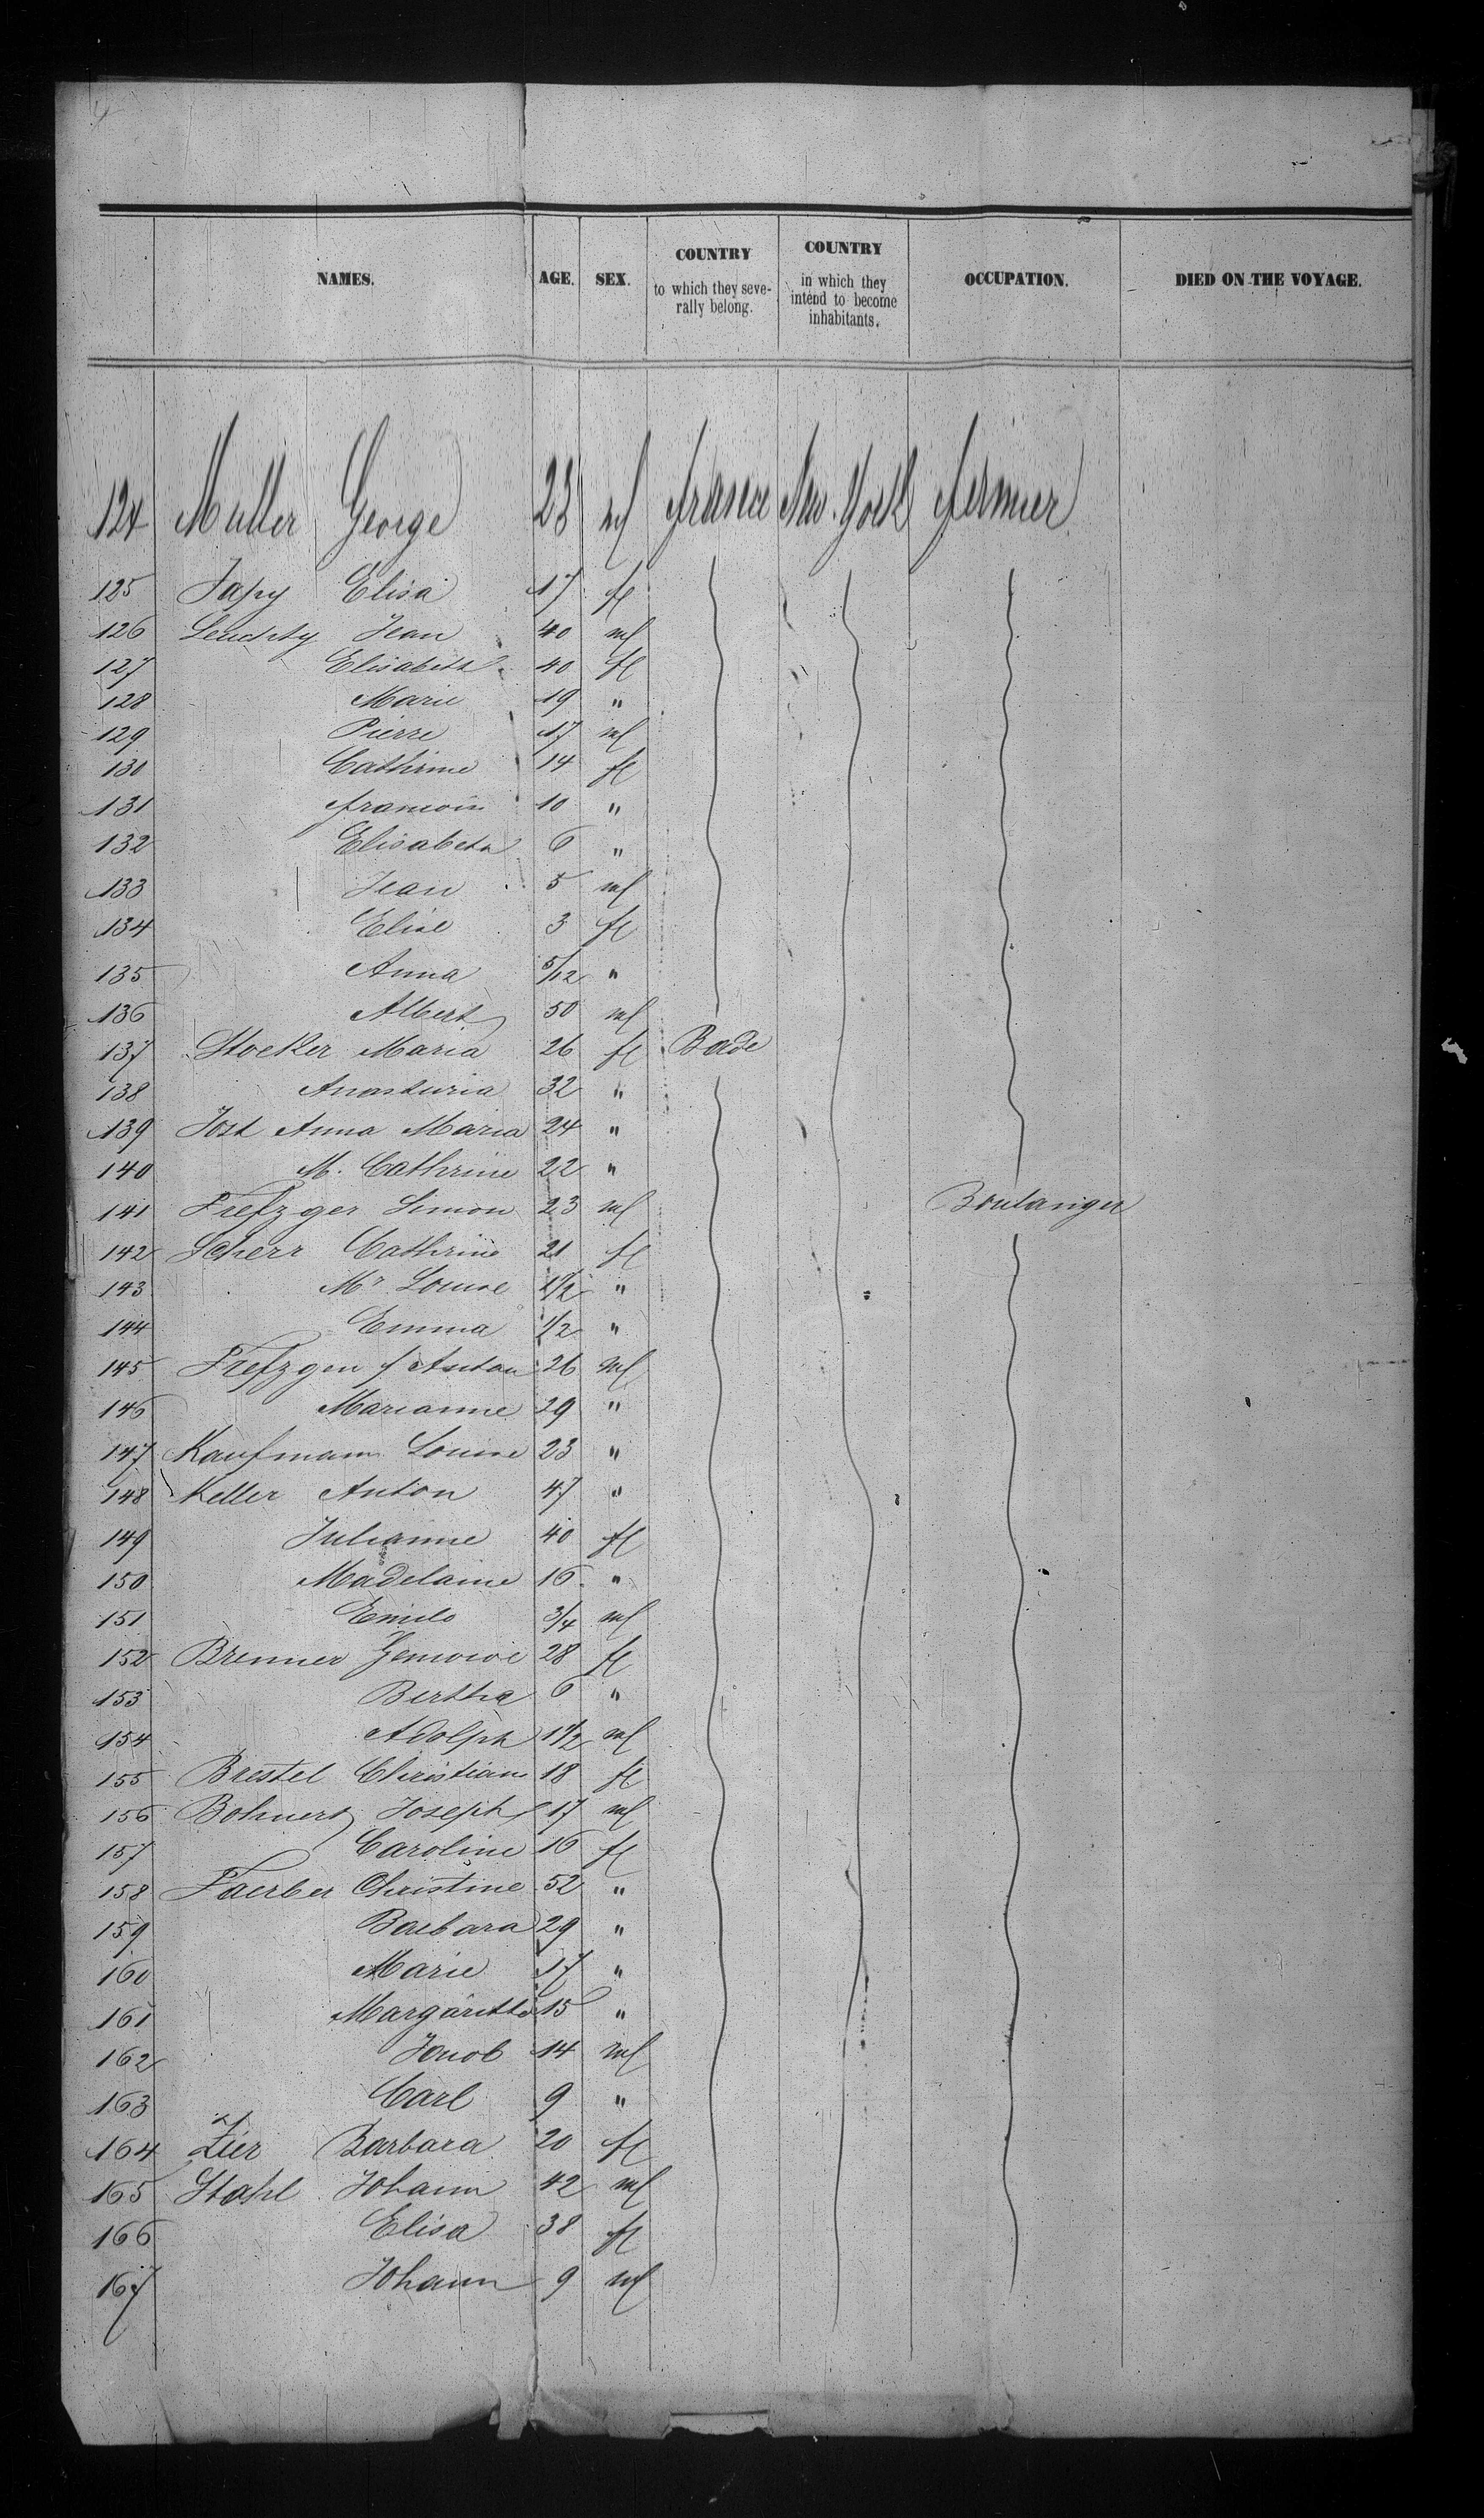 NAMES. AGE. SEX. COUNTRY to which they seve- rally belong. COUNTRY in which they intend to become inhabitants. OCCUPATION. DIED ON THE VOYAGE.
124 Muller George 23 M France New. York fermier
125 Japy Elisa 17 fl
126 Jean 40 M
127 Elisabeth 40 fl
128 Marie 19 "
129 Pierre 17 M
130 Cathrine 14 fl
131 10 "
132 Elisabeth 6 "
133 Jean 5 M
134 Elise 3 fl
135 Anna 5/12 "
136 Albert 50 M
137 Stocker Maria 26 fl Bade
138 32 "
139 Jost Anna Maria 24 "
140 M. Cathrine 22 "
141 Trefzger Simon 23 M Boulanger
142 Scherr Cathrine 21 fl
143 Mr Louise 1 1/2 "
144 Emma 1/2 "
145 Anton 26 M
146 Marianne 29 "
147 Kaufmann Louise 23 "
148 Keller Anton 47 "
149 Julianne 40 fl
150 Madelaine 16 "
151 Emile 3/4 M
152 Brenner 28 fl
153 Bertha 6 "
154 Adolph 1 1/2 M
155 Brestel Christian 18 fl
156 Bohnert Joseph 17 M
157 Caroline 16 fl
158 Faerber Christine 52 "
159 Barbara 29 "
160 Marie 17 "
161 15 "
162 14 M
163 Carl 9 "
164 Zier Barbara 20 fl
165 Stahl Johann 42 M
166 Elisa 38 fl
167 Johann 9 M